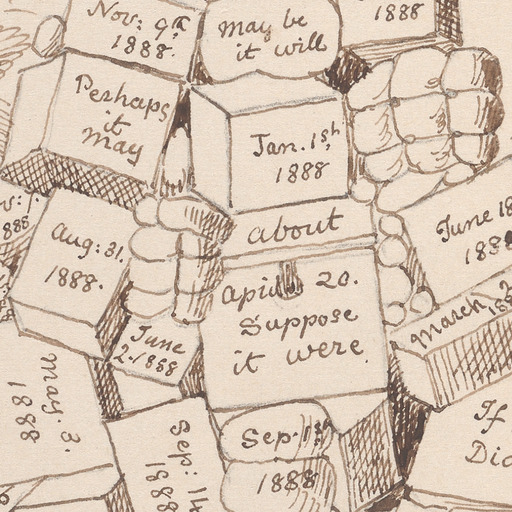 Nov: 9th
1888.
may be
it will
1888
Perhaps
it
may
Jan. 1st
1888
about
June 18
188
Aug: 31.
1888.
888
April 20.
Suppose
it were.
June
2. 1888
March
188
May. 3.
1888
Sep: 14
1888
Sep. 1st
1888
If
Did